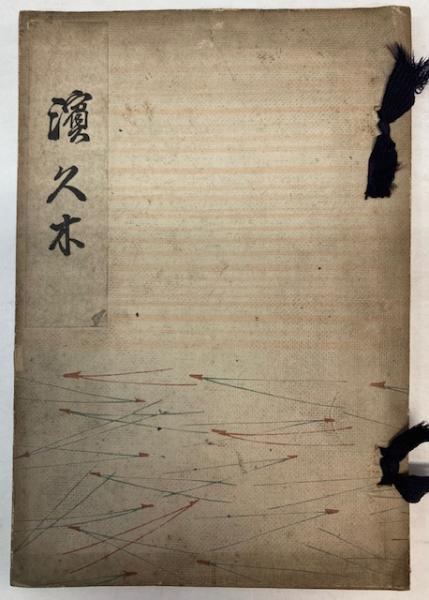 濱久木